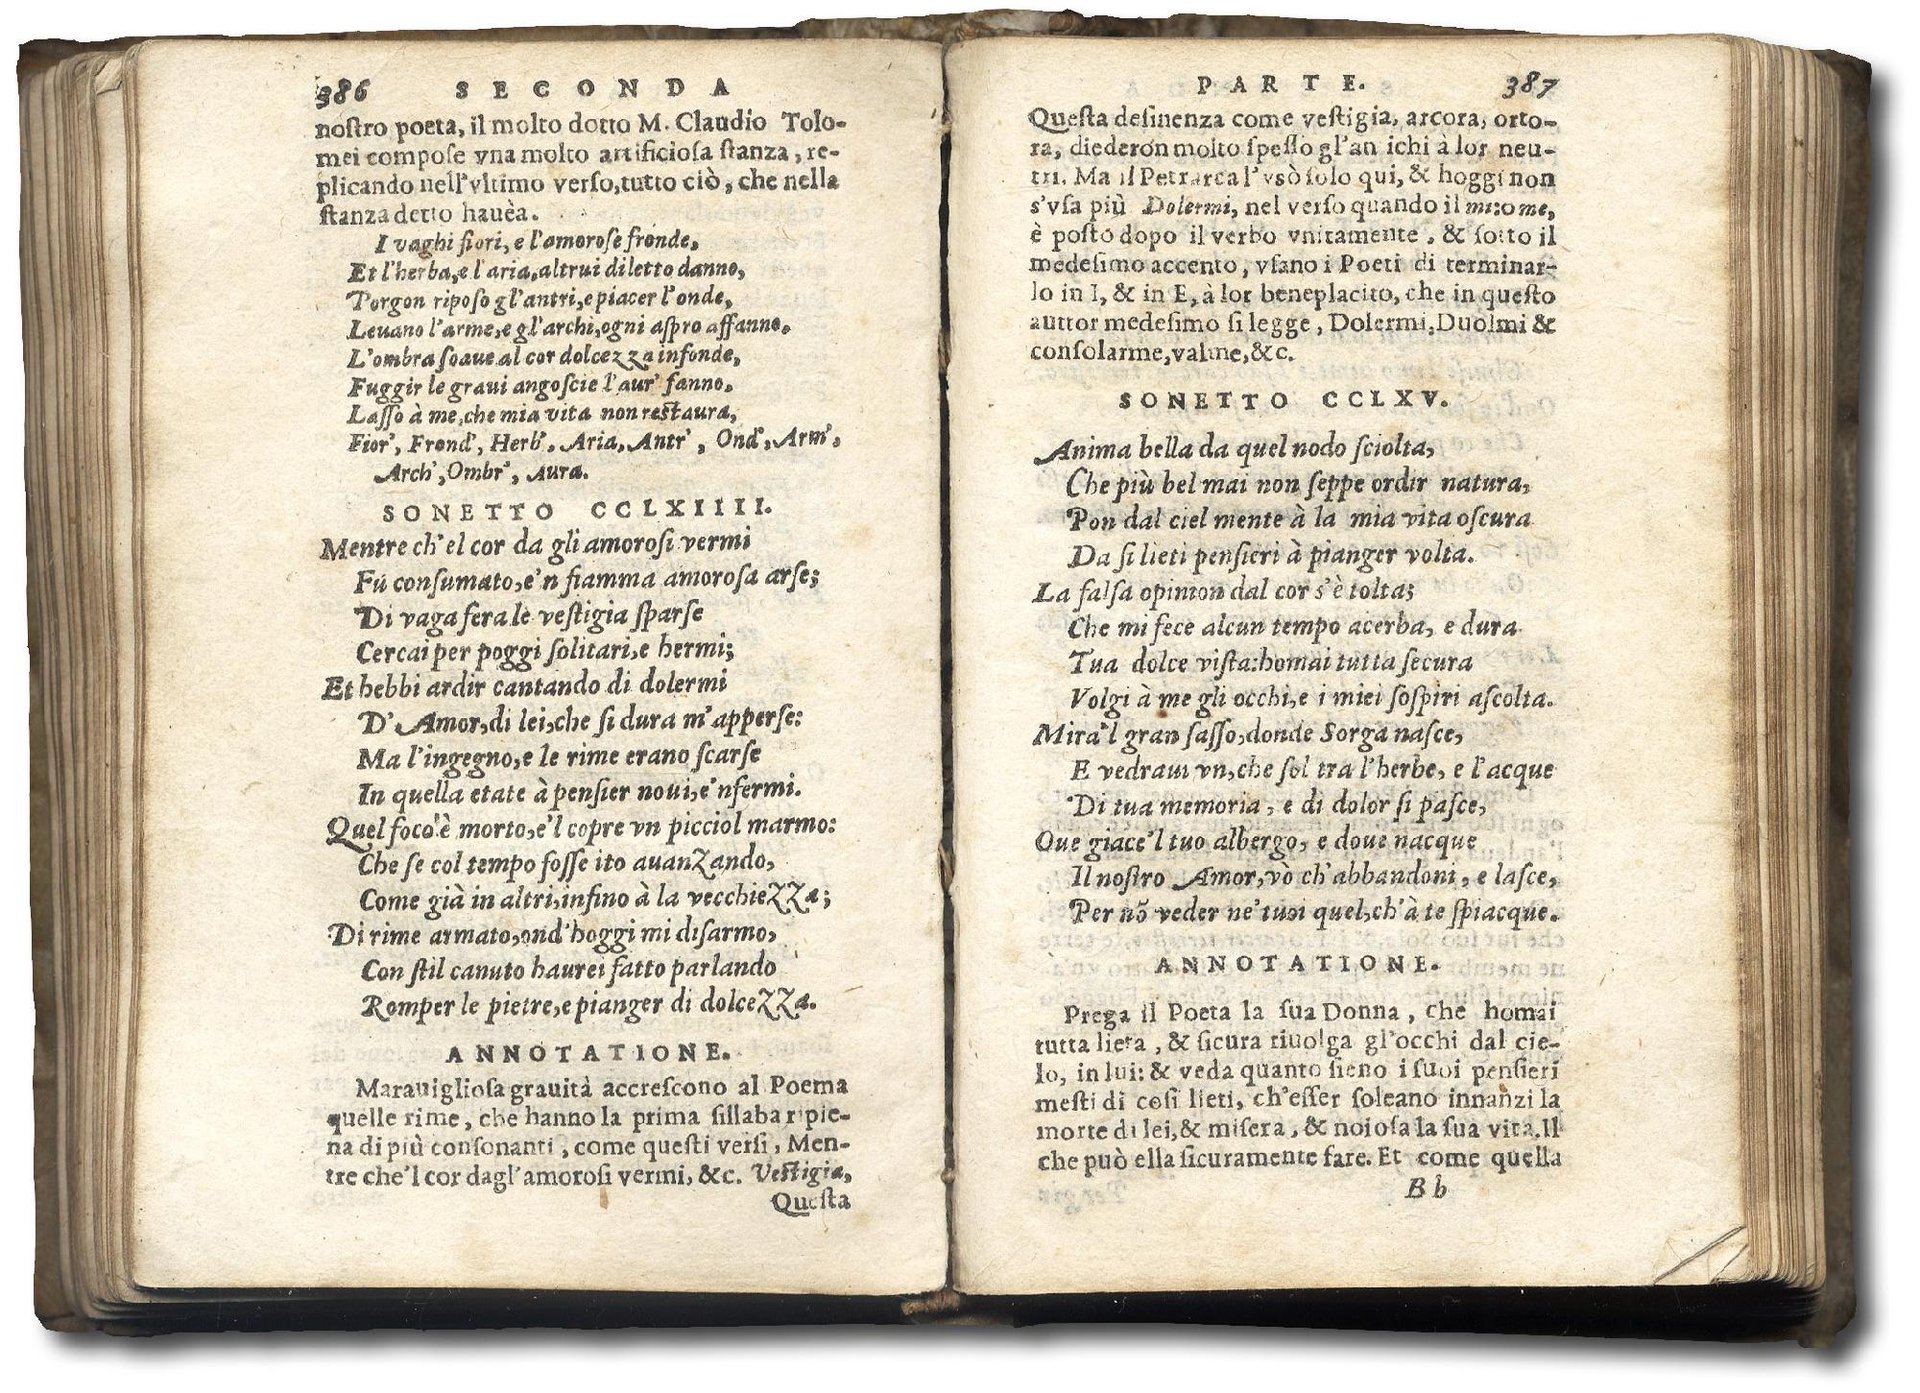 386 SECONDA
noſtro poeta, il molto dotto M. Claudio Tolo-
mei compoſe vna molto artificioſa ſtanza, re-
plicando nell'vltimo verſo, tutto ciò, che nella
ſtanza detto hauèa.
I vaghi fiori, e l'amoroſe fronde,
Et l'herba, e l'aria, altrui diletto danno,
Porgon ripoſo gl'antri, e piacer l'onde,
Leuano l'arme, e gl'archi, ogni aſpro affanno.
L'ombra ſoaue al cor dolcezza infonde,
Fuggir le graui angoſcie l'aur' fanno,
Laſſo à me, che mia vita non reſtaura,
Fior', Frond', Herb', Aria, Antr', Ond', Arm',
Arch', Ombr', Aura.
SONETTO CCLXIIII.
Mentre ch'el cor da gli amoroſi vermi
Fú conſumato, e'n fiamma amoroſa arſe;
Di vaga fera le veſtigia ſparſe
Cercai per poggi ſolitari, e hermi;
Et hebbi ardir cantando di dolermi
D'Amor, di lei, che ſi dura m'apperſe:
Ma l'ingegno, e le rime erano ſcarſe
In quella etate à penſier noui, e'nfermi.
Quel foco è morto, e'l copre vn picciol marmo:
Che ſe col tempo foſſe ito auanzando,
Come già in altri, infino à la vecchiezza;
Di rime armato, ond'hoggi mi diſarmo,
Con ſtil canuto haurei fatto parlando
Romper le pietre, e pianger di dolcezza.
ANNOTATIONE.
Marauiglioſa grauità accreſcono al Poema
quelle rime, che hanno la prima ſillaba ripie-
na di più conſonanti, come queſti verſi, Men-
tre che'l cor dagl'amoroſi vermi, &c. Veſtigia,
Queſta
PARTE. 387
Queſta deſinenza come veſtigia, arcora, orto-
ra, diederon molto ſpeſſo gl'an ichi à lor neu-
tri. Ma il Petrarca l'vsò ſolo qui, & hoggi non
s'vſa più Dolermi, nel verſo quando il mi: o me,
è poſto dopo il verbo vnitamente, & ſotto il
medeſimo accento, vſano i Poeti di terminar-
lo in I, & in E, à lor beneplacito, che in queſto
auttor medeſimo ſi legge, Dolermi, Duolmi &
conſolarme, valme, &c.
SONETTO CCLXV.
Anima bella da quel nodo ſciolta,
Che più bel mai non ſeppe ordir natura,
Pon dal ciel mente à la mia vita oſcura
Da ſi lieti penſieri à pianger volta.
La falſa opinion dal cor s'è tolta;
Che mi fece alcun tempo acerba, e dura
Tua dolce viſta: homai tutta ſecura
Volgi à me gli occhi, e i miei ſoſpiri aſcolta.
Mira'l gran ſaſſo, donde Sorga naſce,
E vedraui vn, che ſol tra l'herbe, e l'acque
Di tua memoria, e di dolor ſi paſce,
Oue giace'l tuo albergo, e doue nacque
Il noſtro Amor, vò ch'abbandoni, e laſce,
Per nō veder ne'tuoi quel, ch'à te ſpiacque.
ANNOTATIONE.
Prega il Poeta la ſua Donna, che homai
tutta lieta, & ſicura riuolga gl'occhi dal cie-
lo, in lui: & veda quanto ſieno i ſuoi penſieri
meſti di coſi lieti, ch'eſſer ſoleano innanzi la
morte di lei, & miſera, & noioſa la ſua vita. Il
che può ella ſicuramente fare. Et come quella
Bb